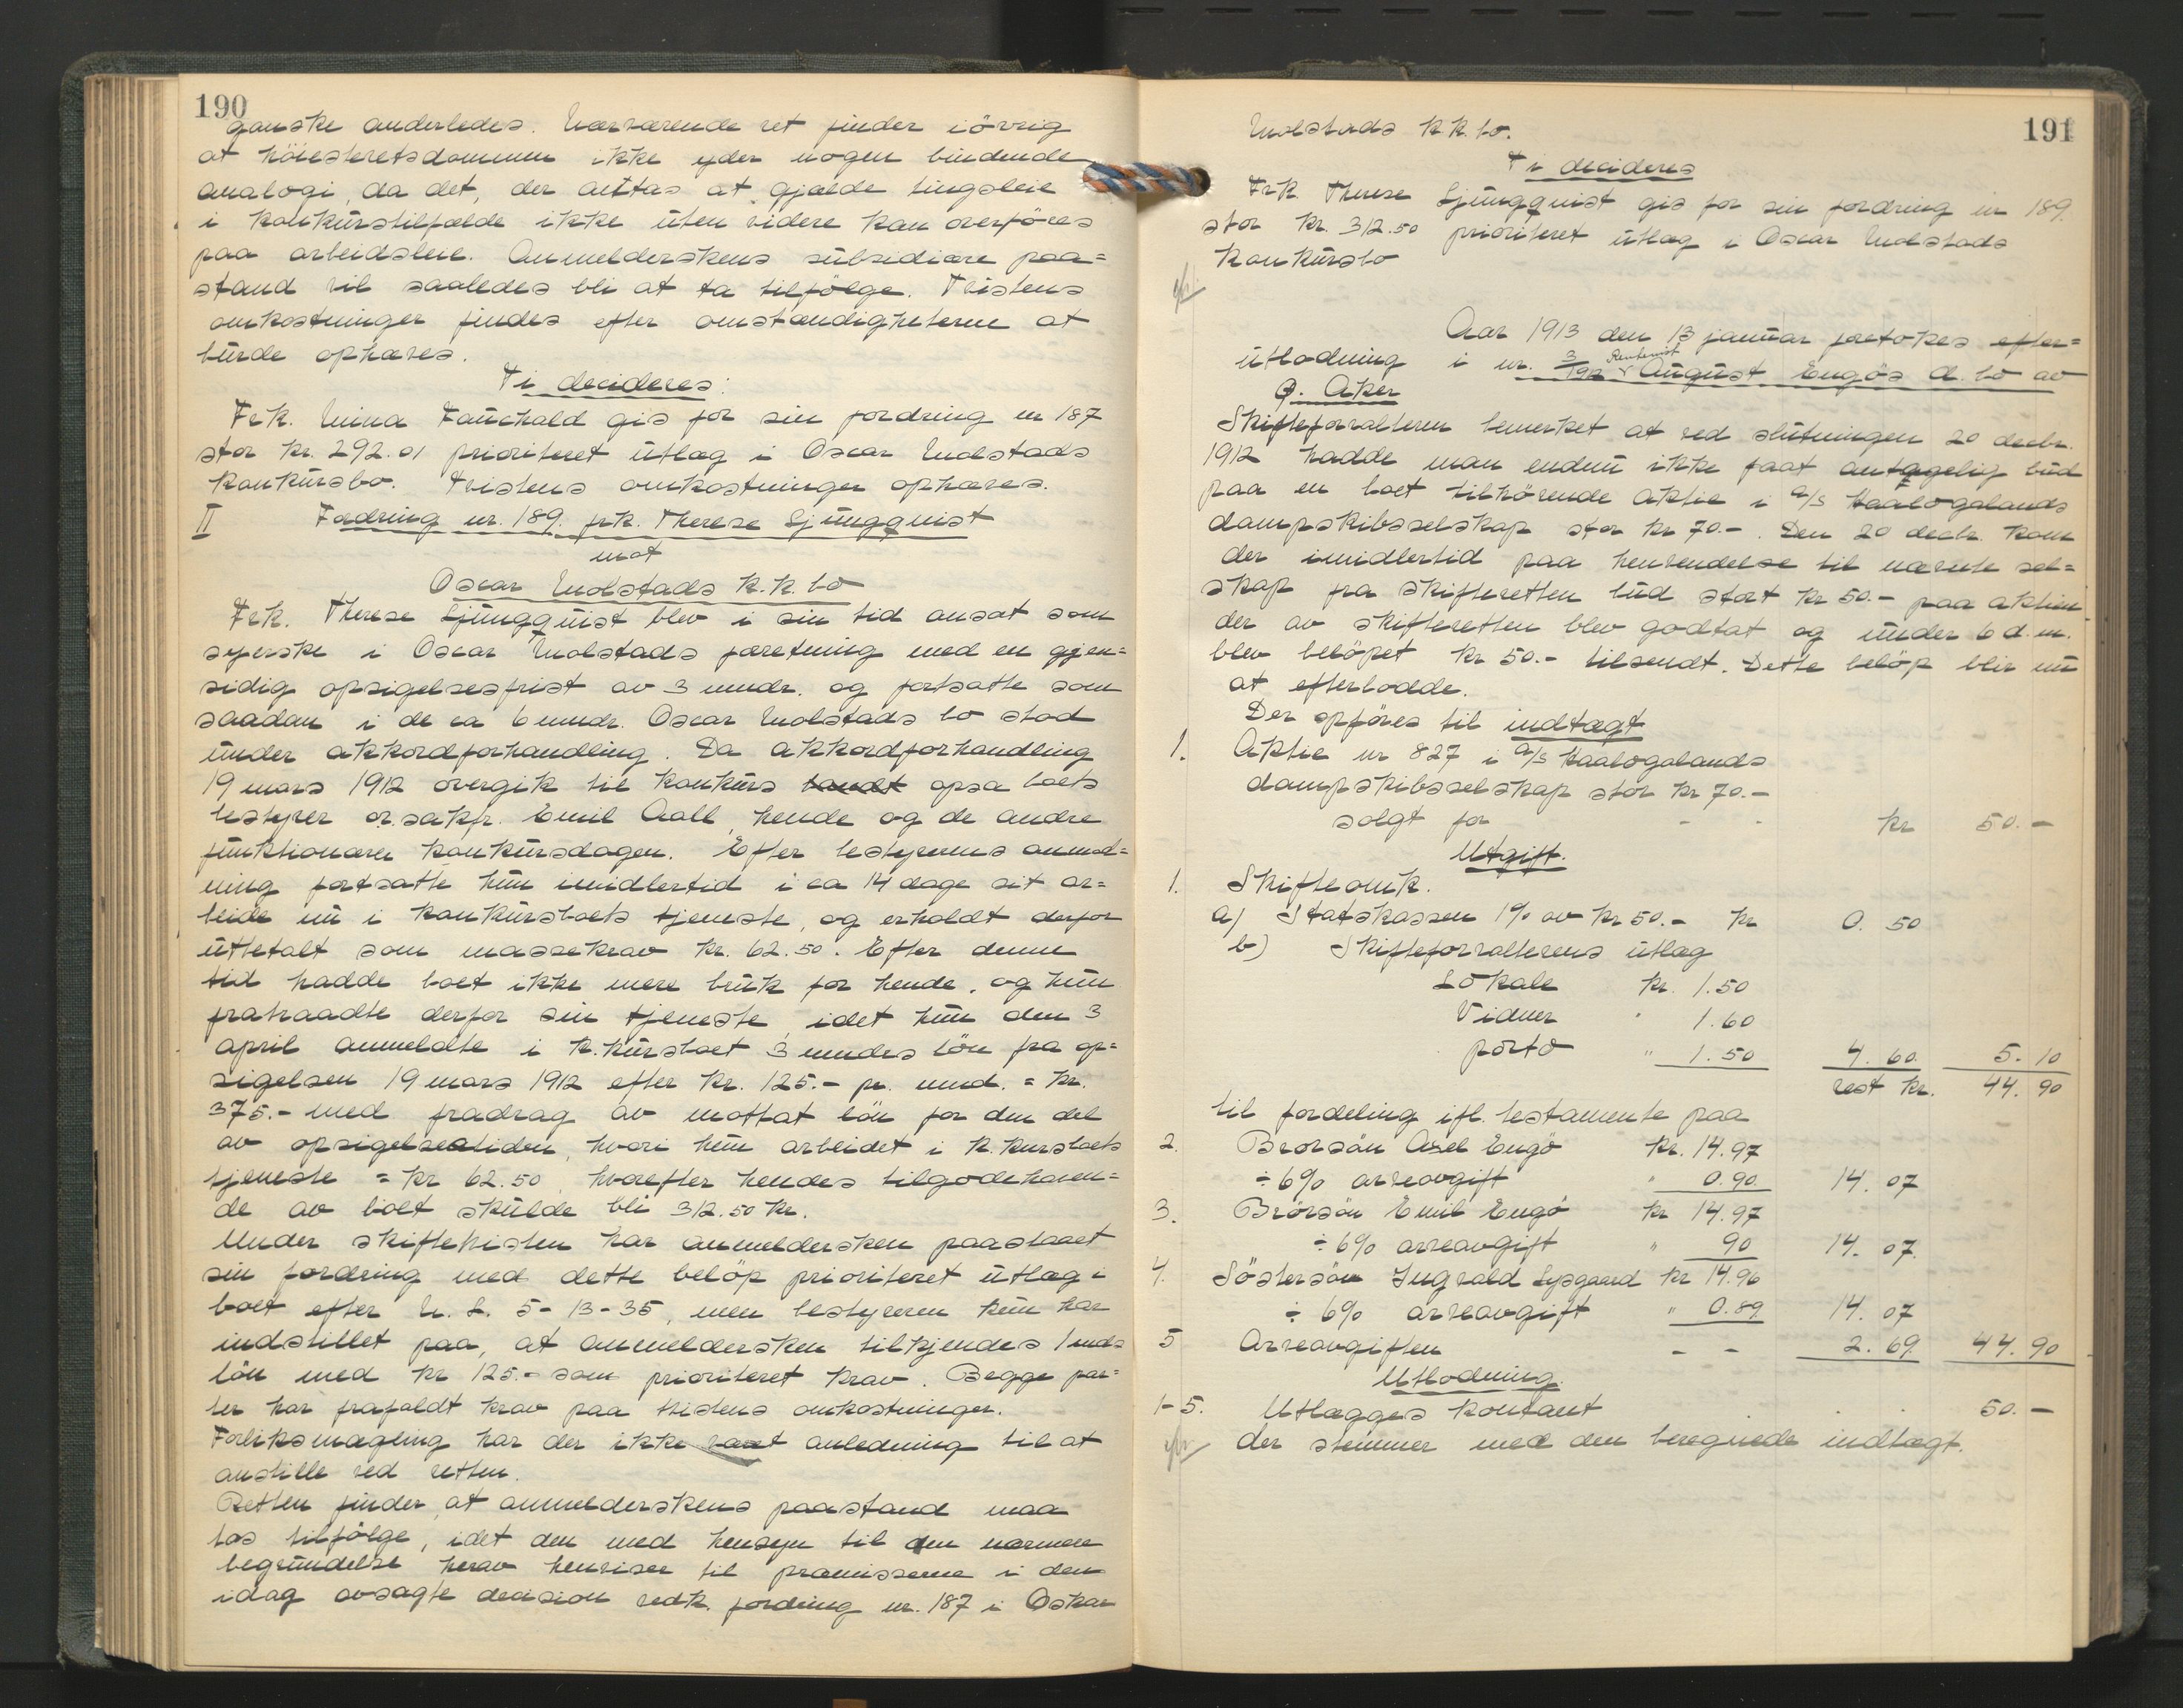 190
ganske anderledes. Nærværende ret finder iövrig
at höiesteretsdommen ikke yder nogen bindende
analogi, da det, der anttas at gjælde tingsleie
i konkurstilfælde ikke uten videre kan overföres
paa arbeidsleie. Anmelderskens subsidiære paa=
stand vil saaledes bli at ta tilfölge. Tvistens
omkostninger findes efter omstændigheterne at
burde ophæves.
Ti decideres:
Frk. Mina Fauchald gis for sin fordring nr 187
stor kr. 292.01 prioriteret utlæg i Oscar Molstads
konkursbo. Tvistens omkostninger ophæves.
II Fordring nr. 189. frk. Therese Ljungquist
mot
Oscar Molstads k.k. bo
Frk. Therese Ljungquist blev i sin tid ansat som
syerske i Oscar Molstads forretning med en gjen=
sidig opsigelsesfrist av 3 mndr. og fortsatte som
saadan i de ca 6 mndr. Oscar Molstads bo stod
under akkordforhandling. Da akkordforhandling
19 mars 1912 overgik til konkurs opsa boets
bestyrer or. sakfr. Emil Aall, hende og de andre
funktionærer konkursdagen. Efter bestyrerens anmod=
ning fortsatte hun imidlertid i ca 14 dage sit ar=
beide nu i konkursboets tjeneste, og erholdt derfor
utbetalt som massekrav kr. 62.50. Efter denne
tid hadde boet ikke mere bruk for hende, og hun
fratraadte derfor sin tjeneste, idet hun den 3
april anmeldte i k.kursboet 3 mndrs lön fra op=
sigelsen 19 mars 1912 efter kr. 125.- pr. mnd. = kr.
375.- med fradrag av mottat lön for den del
av opsigelsestiden, hvori hun arbeidet i k.kursboets
tjeneste = kr 62.50, hvorefter hendes tilgodehaven=
de av boet skulde bli 312.50 kr.
Under skiftetvisten har anmeldersken paastaaet
sin fordring med dette belöp prioriteret utlæg i
boet efter N. L. 5-13-35, men bestyreren kun har
indstillet paa, at anmeldersken tilkjendes 1 mds
lön med kr 125.- som prioriteret krav. Begge par=
ter har frafaldt krav paa tvistens omkostninger.
Forliksmægling har der ikke været anledning til at
anstille ved retten.
Retten finder, at anmelderskens paastand maa
tas tilfölge, idet den med hensyn til den nærmere
begrundelse herav henviser til præmisserne i den
idag avsagte decision vedk. fordring nr. 187 i Oskar
191
Molstads k.k. bo.
Ti decideres
Frk Therese Ljungquist gis for sin fordring nr 189.
stor kr. 312.50 prioriteret utlæg i Oscar Molstads
konkursbo
Aar 1913 den 13 januar foretokes efter=
utlodning i nr. 3/1912 Rentenist August Engös d. bo av
Ø. Aker
Skifteforvalteren bemerket at ved slutningen 20 decbr.
1912 hadde man endnu ikke faat antagelig bud
paa en boet tilhörende aktie i a/s Haalogalands
dampskibsselskap stor kr 70.-. Den 20 decbr. kom
der imidlertid paa henvendelse til nævnte sel=
skap fra skifteretten bud stort kr 50.- paa aktien
der av skifteretten blev godtat og under 6 d.m.
blev belöpet kr 50.- tilsendt. Dette belöp blir nu
at efterlodde.
Der opföres til indtægt
1. Aktie nr 827 i a/s Haalogalands
dampskibsselskap stor kr 70.-
solgt for - - kr 50.-
Utgift.
1. Skifteomk.
a) Statskassen 1% av kr 50.- kr 0.50
b) Skifteforvalterens utlæg
Lokale kr. 1.50
Vidner " 1.60
porto " 1.50 4.60. 5.10
rest kr. 44.90
til fordeling ifl. testamente paa
2. Brorsön Axel Engö kr. 14.97
÷ 6% arveavgift " 0.90. 14.07
3. Brorsön Emil Engö kr 14.97
÷ 6% arveavgift " 90 14.07.
4. Söstersön Ingvald Lysgaard kr 14.96
÷ 6% arveavgift " 0.89 14.07
5 Arveavgiften - - 2.69. 44.90
Utlodning.
1-5. Utlægges kontant 50.-
der stemmer med den beregnede indtægt.